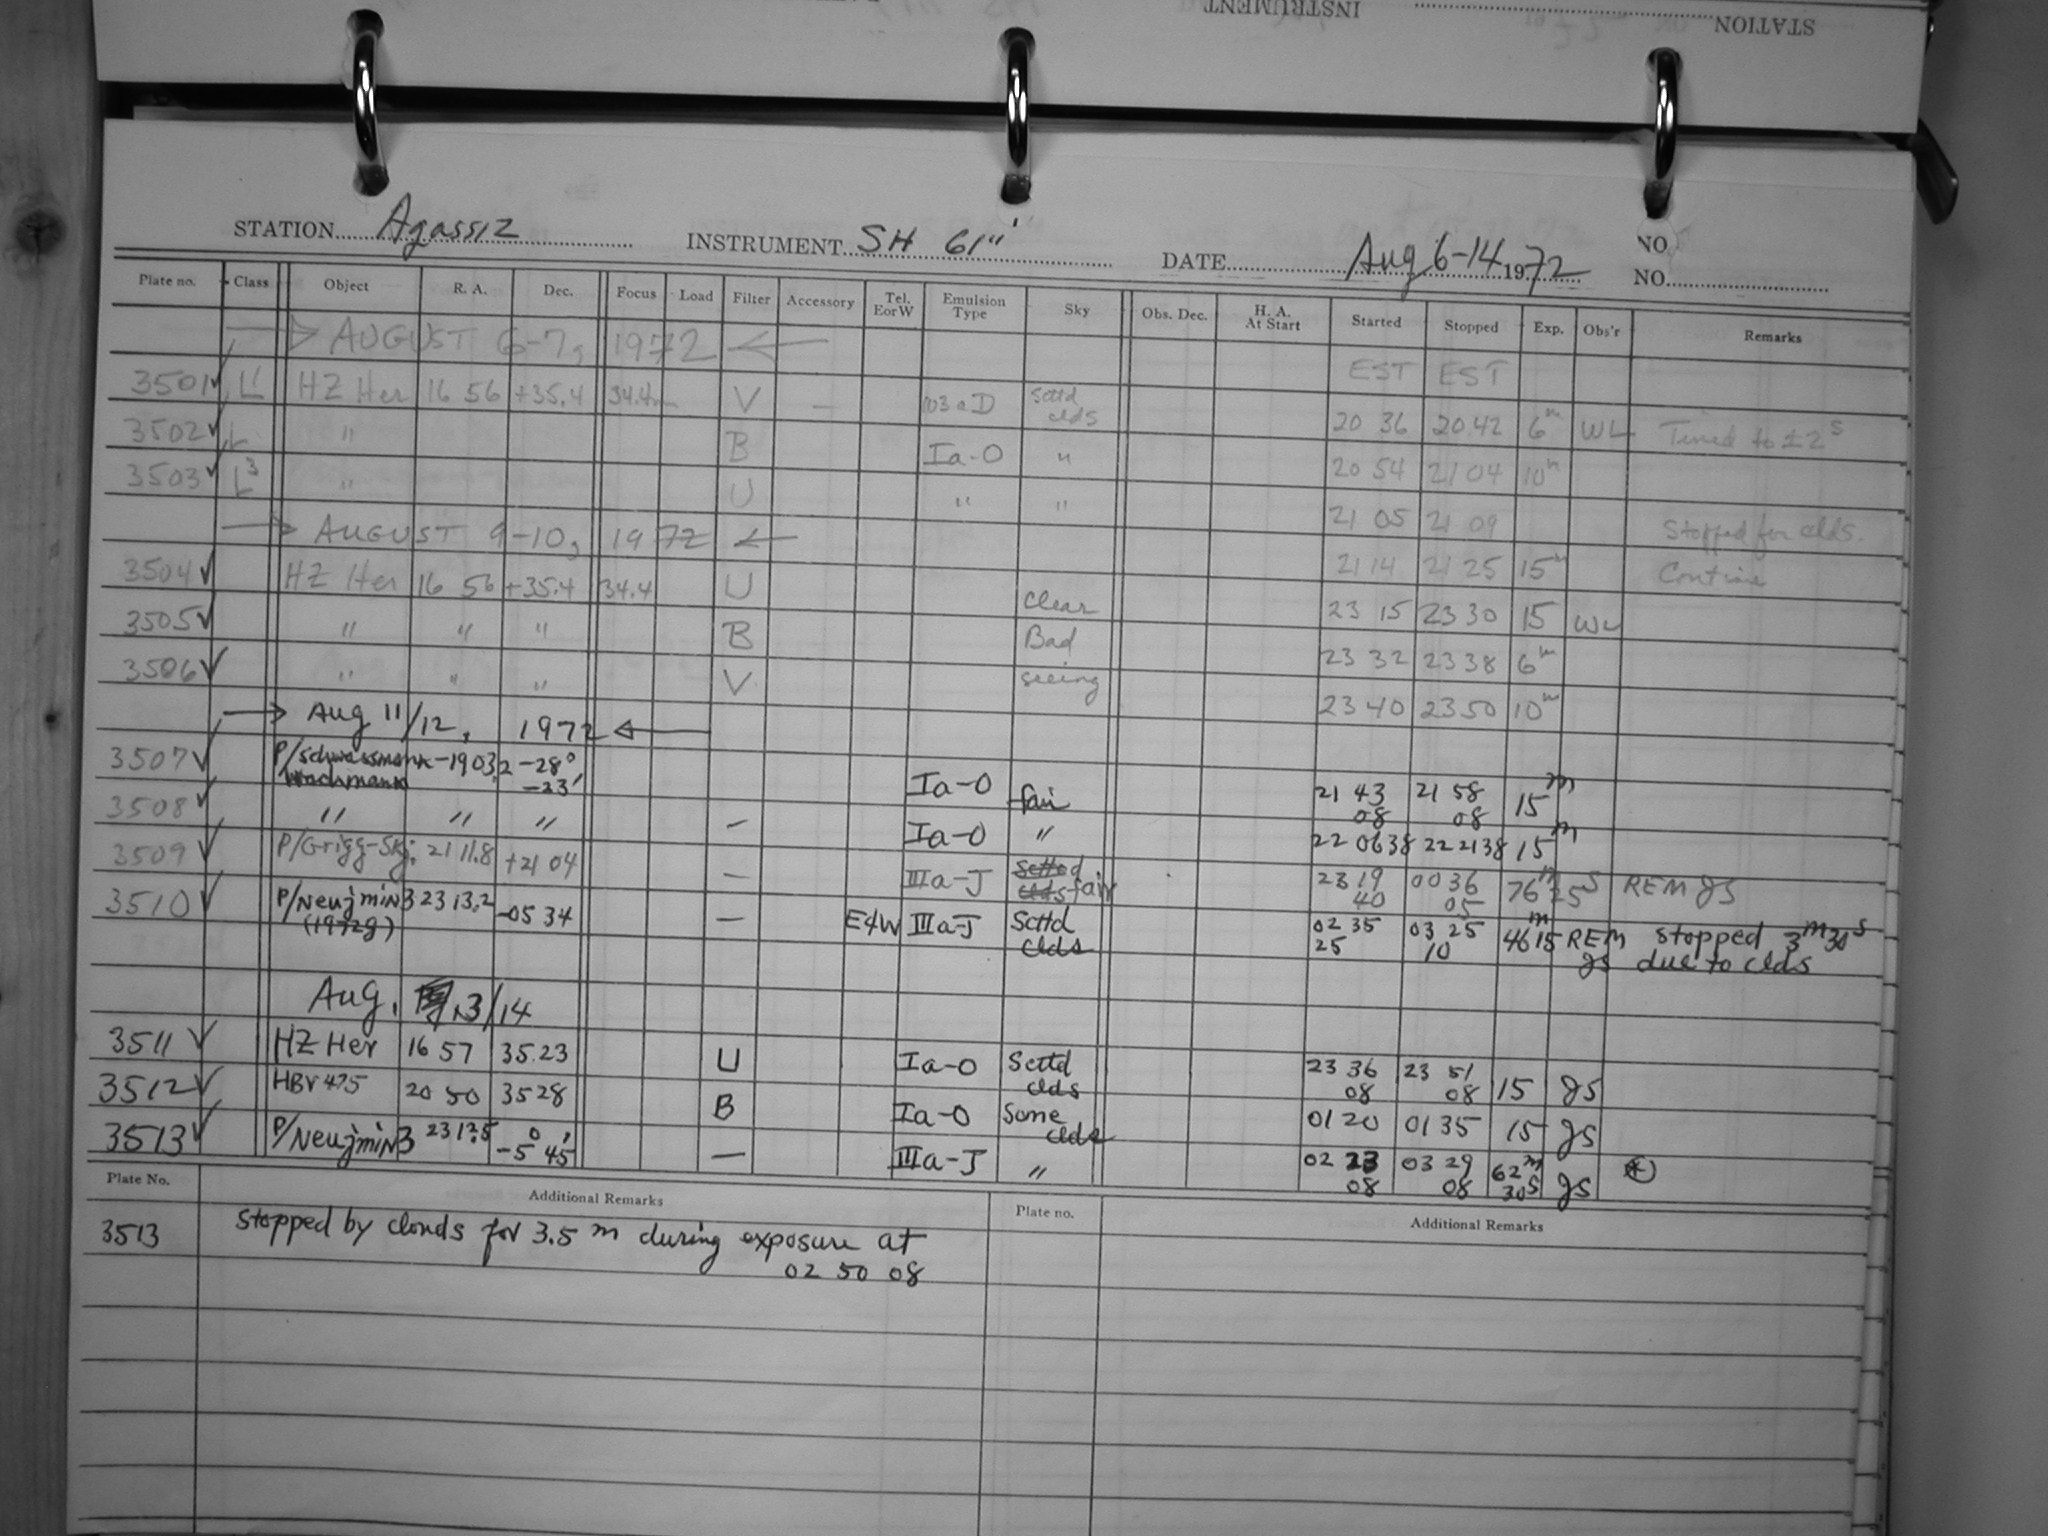 STATION
INSTRUMENT
STATION Agassiz INSTRUMENT SH 61" DATE Aug 6-14 1972 NO
NO.
Plate no. Class Object R. A. Dec. Focus Load Filter Accessory Tel. E or W Emulsion Type Sky Obs. Dec. H. A. At Start Started Stopped Exp. Obs'r Remarks
→ AUGUST 6-7, 1972 ← EST EST
3501 ✓ L' HZ Her 16 56 +35.4 34.4 V — 103aD Scttd clds 20 36 20 42 6m WL Timed to ±2s
3502 ✓ L " B Ia-O " 20 54 21 04 10m
3503 ✓ L3 " U " " 21 05 21 09 Stopped for clds.
→ AUGUST 9-10, 1972 ← 21 14 21 25 15m Continue
3504 ✓ HZ Her 16 56 +35.4 34.4 U Clear 23 15 23 30 15 WL
3505 ✓ " " " B Bad 23 32 23 38 6m
3506 ✓ " " " V seeing 23 40 23 50 10m
→ Aug 11/12, 1972 ←
3507 ✓ P/Schwassmann- Wachmann 1903.2 -28° -23' Ia-O fair 21 43 08 21 58 08 15m
3508 ✓ " " " — Ia-O " 22 06 38 22 21 38 15m
3509 ✓ P/Grigg-Skj. 21 11.8 +21 04 — IIIa-J Scttd clds fair 23 19 40 00 36 05 76m 25s REM gs
3510 ✓ P/Neujmin 3 (1972g) 23 13.2 -05 34 — E&W IIIa-J Scttd clds 02 35 25 03 25 10 46m 15 REM gs stopped 3m 30s due to clds
Aug. 13/14
3511 ✓ HZ Her 16 57 35.23 U Ia-O Scttd clds 23 36 08 23 51 08 15 gs
3512 ✓ HBV 475 20 50 35 28 B Ia-O Some clds 01 20 01 35 15 gs
3513 ✓ P/Neujmin 3 23 12.5 -5° 45' — IIIa-J " 02 23 08 03 29 08 62m 30s gs (*)
Plate No. Additional Remarks Plate no. Additional Remarks
3513 Stopped by clouds for 3.5 m during exposure at
02 50 08